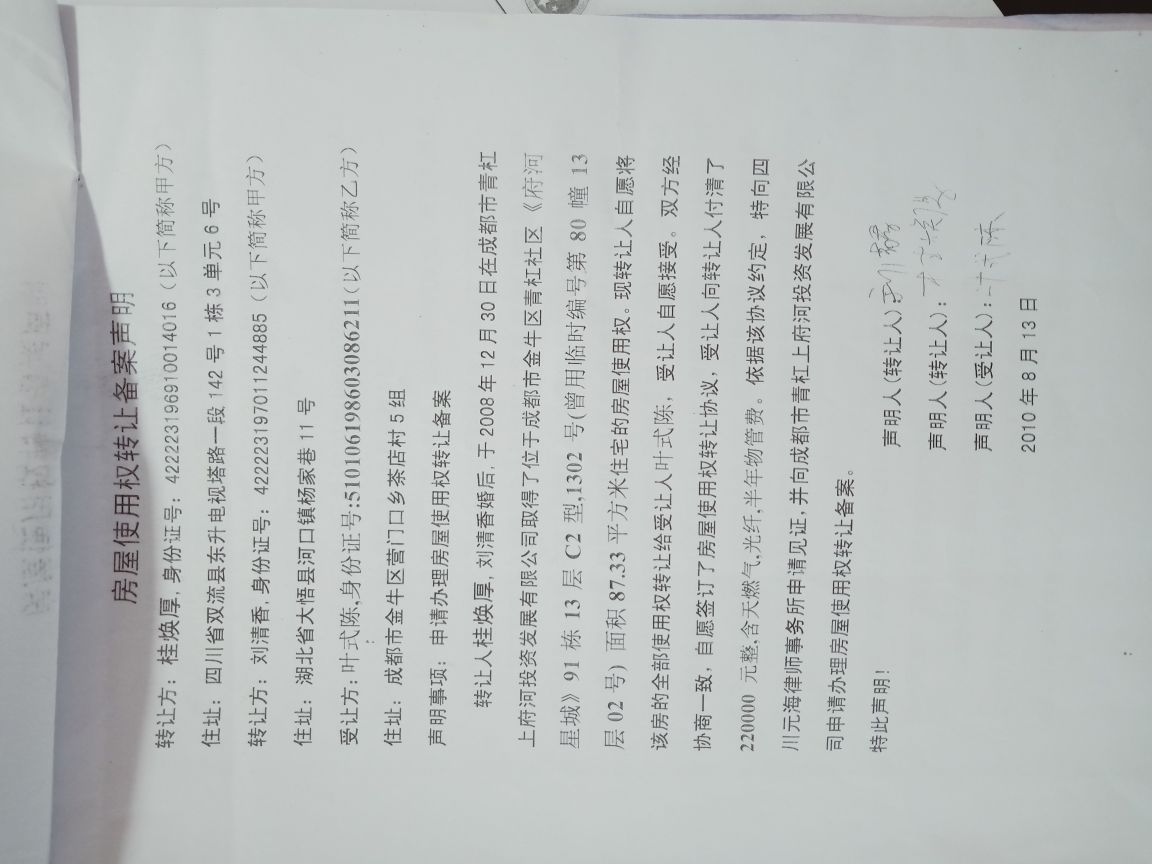 房屋使用权转让备案声明
转让方：桂焕厚，身份证号：422223196910014016（以下简称甲方）
住址：四川省双流县东升电视塔路一段142号1栋3单元6号
转让方：刘清香，身份证号：422223197011244885（以下简称甲方）
住址：湖北省大悟县河口镇杨家巷11号
受让方：叶式陈,身份证号:510106198603086211(以下简称乙方)
住址：成都市金牛区营门口乡茶店村5组
声明事项：申请办理房屋使用权转让备案
转让人桂焕厚，刘清香婚后,于2008年12月30日在成都市青杠
上府河投资发展有限公司取得了位于成都市金牛区青杠社区《府河
星城》91栋13层C2型,1302号(曾用临时编号第80幢13
层02号）面积87.33平方米住宅的房屋使用权。现转让人自愿将
该房的全部使用权转让给受让人叶式陈，受让人自愿接受。双方经
协商一致，自愿签订了房屋使用权转让协议，受让人向转让人付清了
220000元整,含天燃气,光纤,半年物管费。依据该协议约定，特向四
川元海律师事务所申请见证,并向成都市青杠上府河投资发展有限公
司申请办理房屋使用权转让备案。
特此声明！
声明人(转让人)
声明人(转让人)：
声明人(受让人)：叶式陈
2010年8月13日